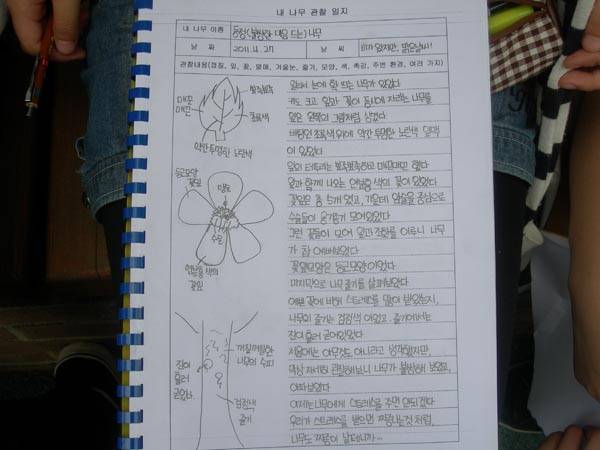 내 나무 관찰 일지
내 나무 이름
동정(불쌍한 마음 드는) 나무
날 짜
2011.4.27
날 씨
비가 왔지만, 맑은날씨!
관찰내용(껍질, 잎, 꽃, 열매, 겨울눈, 줄기, 모양, 색, 촉감, 주변 환경, 여러 가지)
뾰족뾰족
매끈
매끈
초록색
약간 투명한 노란색
둥근모양
꽃잎
암술
수술
연분홍색의
꽃잎
진이
흘러
굳었다
꺼칠꺼칠한
나무의 수피
검정색
줄기
앞에서 눈에 확 띄는 나무가 있었다
키도 크고 잎과 꽃이 동시에 자라는 나무를
잎은 왼쪽의 그림처럼 생겼다
바탕인 초록색 위에 약간 투명한 노란색 잎맥
이 있었다
잎의 테두리는 뾰족뾰족하고 매끈매끈 했다
잎과 함께 나오는 연분홍 색의 꽃이 있었다
꽃잎은 총 5개 였고, 가운데 암술을 중심으로
수술들이 옹기종기 모여있었다
그런 꽃들이 모여 잎과 조화를 이루니 나무
가 참 예뻐보였다
꽃잎모양은 둥근모양 이었다
마지막으로 나무 줄기를 살펴보았다
예쁜 꽃에 비해 스트레스를 많이 받았는지,
나무의 줄기는 검정색 이었고, 줄기에서는
진이 흘러 굳어있었다
처음에는 아무것도 아니라고 생각했지만,
막상 자세히 관찰해보니 나무가 불쌍해 보였고,
아파보였다
이제는 나무에게 스트레스를 주면 안되겠다
우리가 스트레스를 받으면 짜증나는것 처럼,
나무도 짜증이 날테니까...